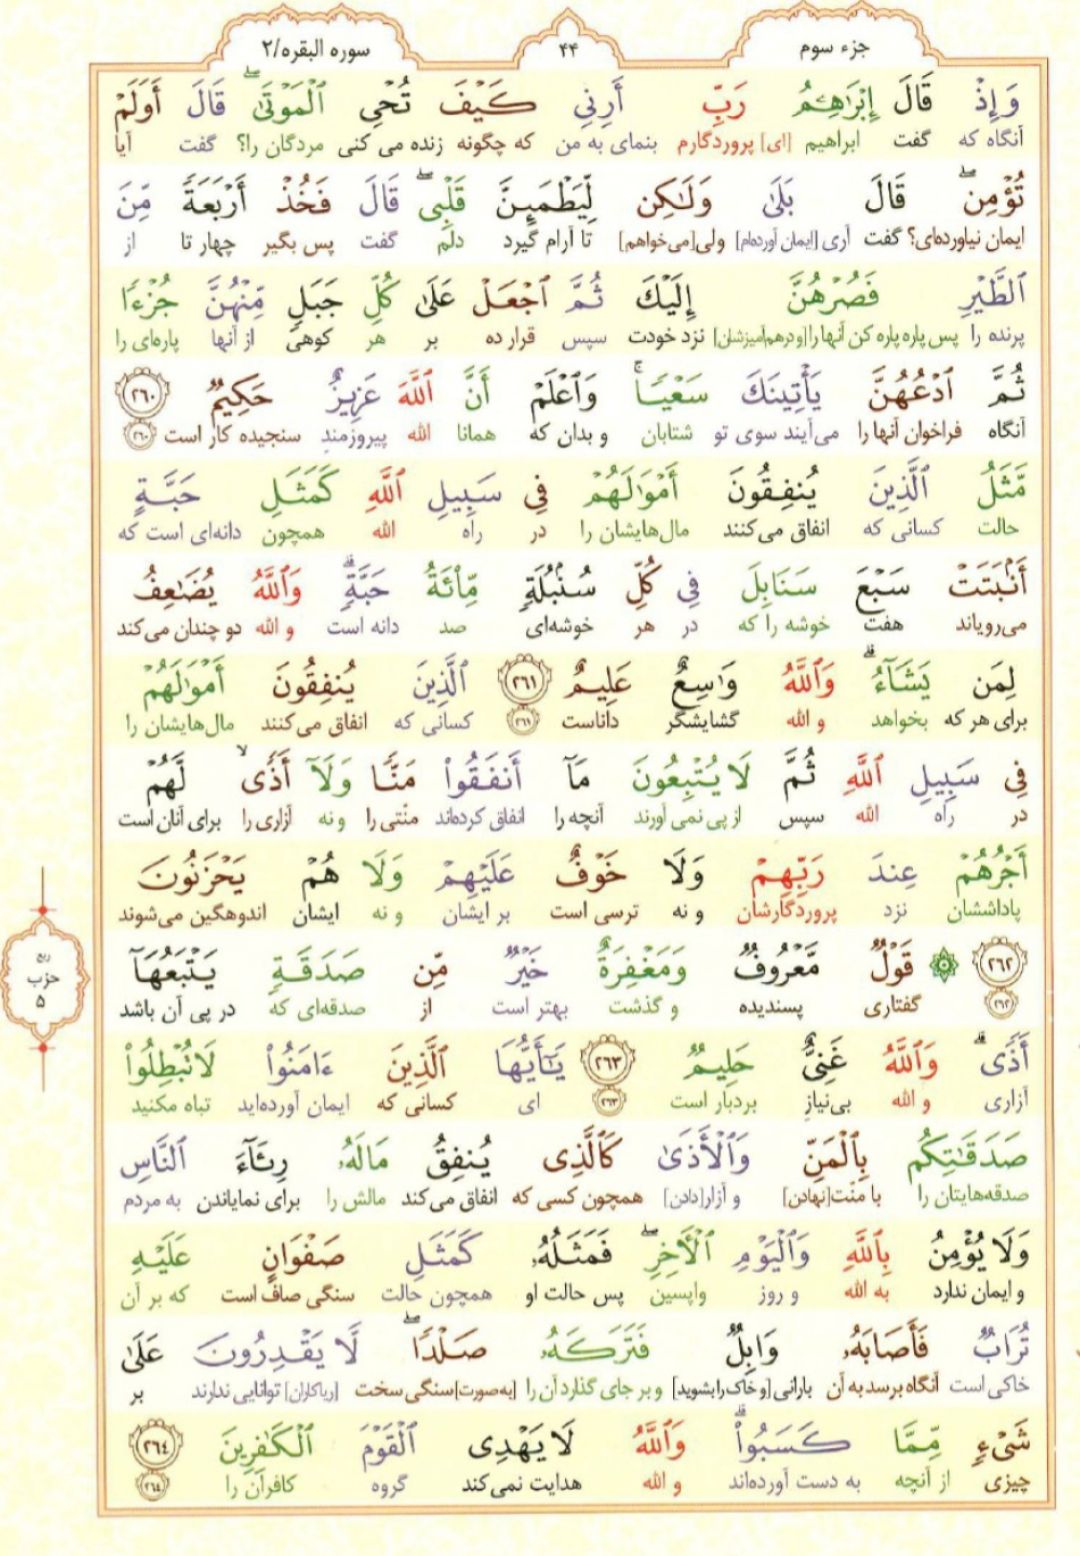 جزء سوم
۴۴
سوره البقره/۲
وَإِذۡ قَالَ إِبۡرَٰهِـۧمُ رَبِّ أَرِنِي كَيۡفَ تُحۡيِ ٱلۡمَوۡتَىٰۖ قَالَ أَوَلَمۡ
آنگاه که گفت ابراهیم [ای] پروردگارم بنمای به من که چگونه زنده می کنی مردگان را؟ گفت آیا
تُؤۡمِنۖ قَالَ بَلَىٰ وَلَٰكِن لِّيَطۡمَئِنَّ قَلۡبِيۖ قَالَ فَخُذۡ أَرۡبَعَةٗ مِّنَ
ایمان نیاورده‌ای؟ گفت آری [ایمان آورده‌ام] ولی[می‌خواهم] تا آرام گیرد دلم گفت پس بگیر چهار تا از
ٱلطَّيۡرِ فَصُرۡهُنَّ إِلَيۡكَ ثُمَّ ٱجۡعَلۡ عَلَىٰ كُلِّ جَبَلٖ مِّنۡهُنَّ جُزۡءٗا
پرنده را پس پاره پاره کن آنها را[و درهم‌آمیزشان] نزد خودت سپس قرار ده بر هر کوهی از آنها پاره‌ای را
ثُمَّ ٱدۡعُهُنَّ يَأۡتِينَكَ سَعۡيٗاۚ وَٱعۡلَمۡ أَنَّ ٱللَّهَ عَزِيزٌ حَكِيمٞ ٢٦٠
آنگاه فراخوان آنها را می‌آیند سوی تو شتابان و بدان که همانا الله پیروزمندِ سنجیده کار است ۲۶۰
مَّثَلُ ٱلَّذِينَ يُنفِقُونَ أَمۡوَٰلَهُمۡ فِي سَبِيلِ ٱللَّهِ كَمَثَلِ حَبَّةٍ
حالت کسانی که انفاق می‌کنند مال‌هایشان را در راه الله همچون دانه‌ای است که
أَنۢبَتَتۡ سَبۡعَ سَنَابِلَ فِي كُلِّ سُنۢبُلَةٖ مِّاْئَةُ حَبَّةٖۗ وَٱللَّهُ يُضَٰعِفُ
می‌رویاند هفت خوشه را که در هر خوشه‌ای صد دانه است و الله دو چندان می‌کند
لِمَن يَشَآءُۚ وَٱللَّهُ وَٰسِعٌ عَلِيمٌ ٢٦١ ٱلَّذِينَ يُنفِقُونَ أَمۡوَٰلَهُمۡ
برای هر که بخواهد و الله گشایشگر داناست ۲۶۱ کسانی که انفاق می‌کنند مال‌هایشان را
فِي سَبِيلِ ٱللَّهِ ثُمَّ لَا يُتۡبِعُونَ مَآ أَنفَقُواْ مَنّٗا وَلَآ أَذٗى لَّهُمۡ
در راه الله سپس از پی نمی آورند آنچه را انفاق کرده‌اند منّتی را و نه آزاری را برای آنان است
أَجۡرُهُمۡ عِندَ رَبِّهِمۡ وَلَا خَوۡفٌ عَلَيۡهِمۡ وَلَا هُمۡ يَحۡزَنُونَ
پاداششان نزد پروردگارشان و نه ترسی است بر ایشان و نه ایشان اندوهگین می‌شوند
٢٦٢ ۞ قَوۡلٞ مَّعۡرُوفٞ وَمَغۡفِرَةٌ خَيۡرٞ مِّن صَدَقَةٖ يَتۡبَعُهَآ
۲۶۲ گفتاری پسندیده و گذشت بهتر است از صدقه‌ای که در پی آن باشد
ربع
حزب
۵
أَذٗىۗ وَٱللَّهُ غَنِيٌّ حَلِيمٞ ٢٦٣ يَٰٓأَيُّهَا ٱلَّذِينَ ءَامَنُواْ لَا تُبۡطِلُواْ
آزاری و الله بی‌نیازِ بردبار است ۲۶۳ ای کسانی که ایمان آورده‌اید تباه مکنید
صَدَقَٰتِكُم بِٱلۡمَنِّ وَٱلۡأَذَىٰ كَٱلَّذِي يُنفِقُ مَالَهُۥ رِئَآءَ ٱلنَّاسِ
صدقه‌هایتان را با منّت[نهادن] و آزار[دادن] همچون کسی که انفاق می‌کند مالش را برای نمایاندن به مردم
وَلَا يُؤۡمِنُ بِٱللَّهِ وَٱلۡيَوۡمِ ٱلۡأٓخِرِۖ فَمَثَلُهُۥ كَمَثَلِ صَفۡوَانٍ عَلَيۡهِ
و ایمان ندارد به الله و روز واپسین پس حالت او همچون حالت سنگی صاف است که بر آن
تُرَابٞ فَأَصَابَهُۥ وَابِلٞ فَتَرَكَهُۥ صَلۡدٗاۖ لَّا يَقۡدِرُونَ عَلَىٰ
خاکی است آنگاه برسد به آن بارانی [و خاک را بشوید] و بر جای گذارد آن را [به‌صورت]سنگی سخت [ریاکاران] توانایی ندارند بر
شَيۡءٖ مِّمَّا كَسَبُواْۗ وَٱللَّهُ لَا يَهۡدِي ٱلۡقَوۡمَ ٱلۡكَٰفِرِينَ ٢٦٤
چیزی از آنچه به دست آورده‌اند و الله هدایت نمی‌کند گروه کافران را ۲۶۴